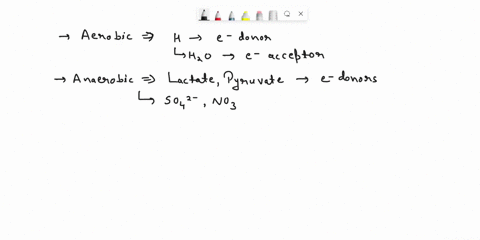 → Aerobic ⇒ H → e⁻ donor
↳ H₂O → e⁻ acceptor
→ Anaerobic ⇒ Lactate, Pyruvate → e⁻ donors
↳ SO₄²⁻, NO₃